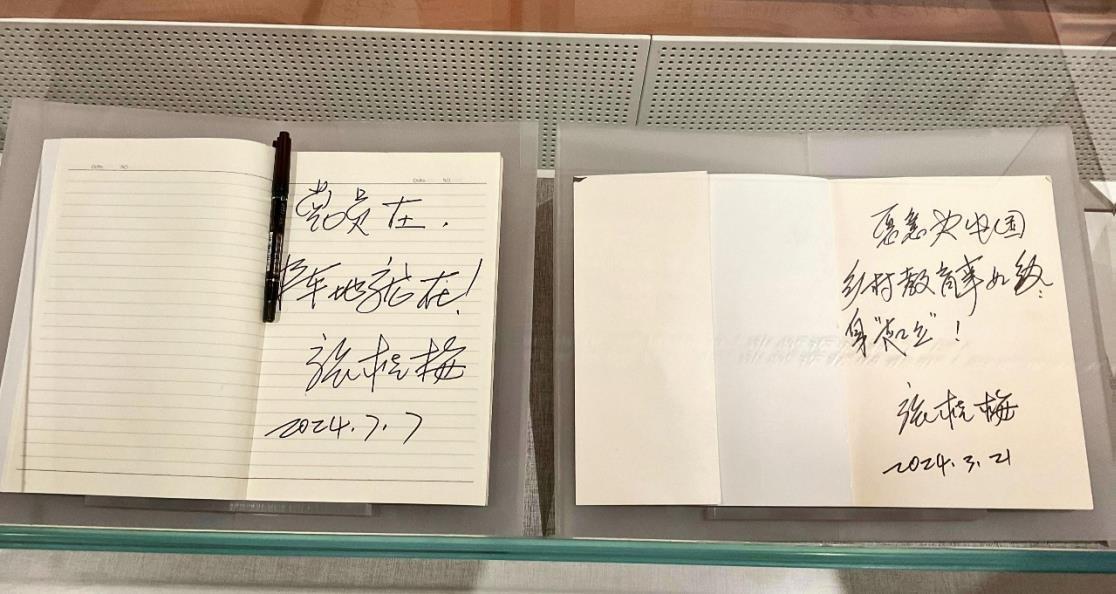 Date. No.
Date. No.
党员在.
阵地就在!
张桂梅
2024.7.7
愿意为中国
乡村教育事业终
身“ ”!
张桂梅
2024.3.21